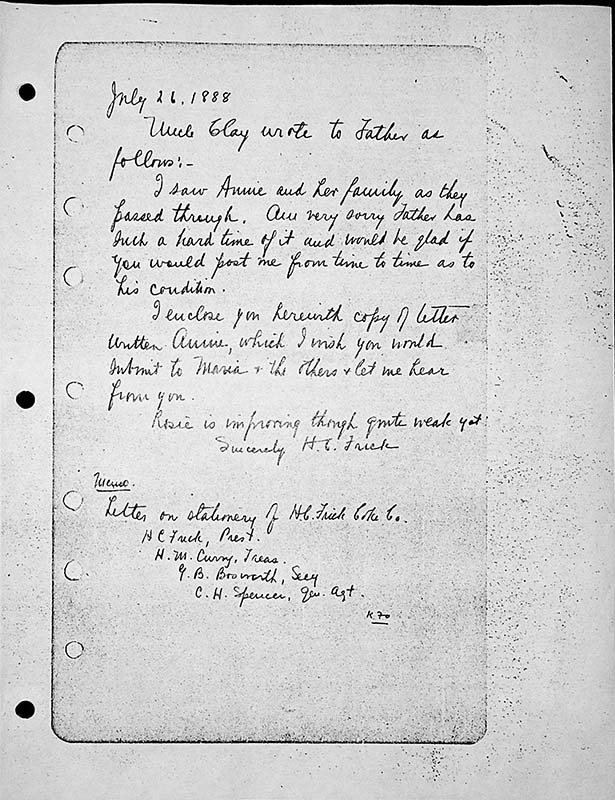 July 26, 1888
Uncle Clay wrote to Father as
follows:-
I saw Annie and her family as they
passed through. Am very sorry Father has
such a hard time of it and would be glad if
you would post me from time to time as to
his condition.
I enclose you herewith copy of letter
written Annie, which I wish you would
submit to Maria + the others + let me hear
from you.
Rosie is improving though quite weak yet
Sincerely H. C. Frick
Memo.
Letter on stationery of H.C. Frick Coke Co.
H C Frick, Prest.
H. M. Curry, Treas.
Y. B. Bosworth, Secy
C. H. Spencer, Gen. Agt.
K 70